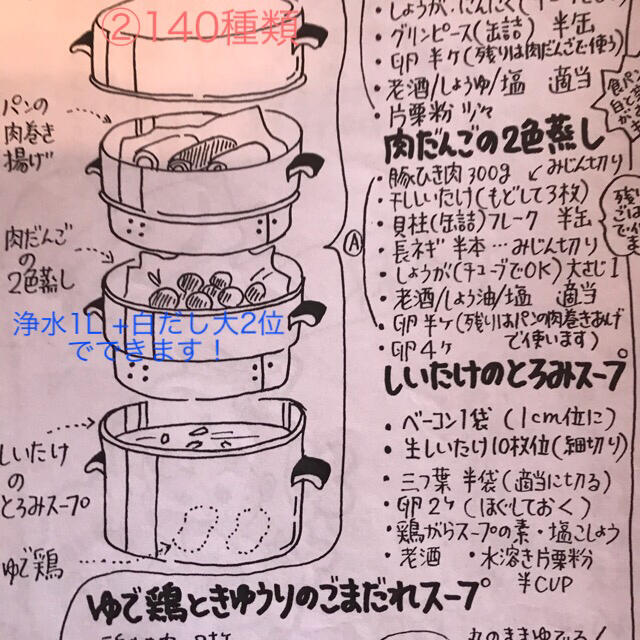 ②140種類
パンの
肉巻き
揚げ
肉だんご
の
2色蒸し
浄水1L+白だし大2位
でできます！
しいたけ
の
とろみスープ
ゆで鶏
・グリンピース(缶詰) 半缶
・卵 半ケ(残りは肉だんごで使う)
・老酒/しょうゆ/塩 適当
・片栗粉
肉だんごの2色蒸し
・豚ひき肉300g
みじん切り
・干ししいたけ(もどして3枚)
・貝柱(缶詰)フレーク 半缶
・長ネギ 半本…みじん切り
・しょうが(チューブでOK)大さじ1
・老酒/しょう油/塩 適当
・卵 半ケ(残りはパンの肉巻きあげ
で使います)
・卵4ケ
Ⓐ
しいたけのとろみスープ
・ベーコン1袋 (1cm位に)
・生しいたけ10枚位(細切り)
・三つ葉 半袋(適当に切る)
・卵2ケ(ほぐしておく)
・鶏がらスープの素・塩こしょう
・老酒 ・水溶き片栗粉
半CUP
ゆで鶏ときゅうりのごまだれスープ